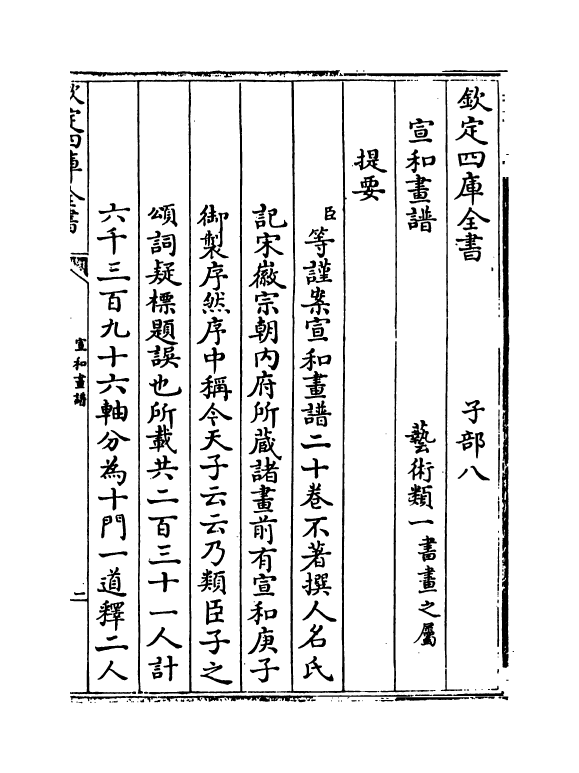 欽定四庫全書　子部八
宣和畫譜　藝術類一書畫之屬
提要
臣等謹案宣和畫譜二十卷不著撰人名氏
記宋徽宗朝内府所蔵諸畫前有宣和庚子
御製序然序中稱今天子云云乃類臣子之
頌詞疑標題誤也所載共二百三十一人計
六千三百九十六軸分為十門一道釋二人
欽定四庫全書
宣和畫譜
二